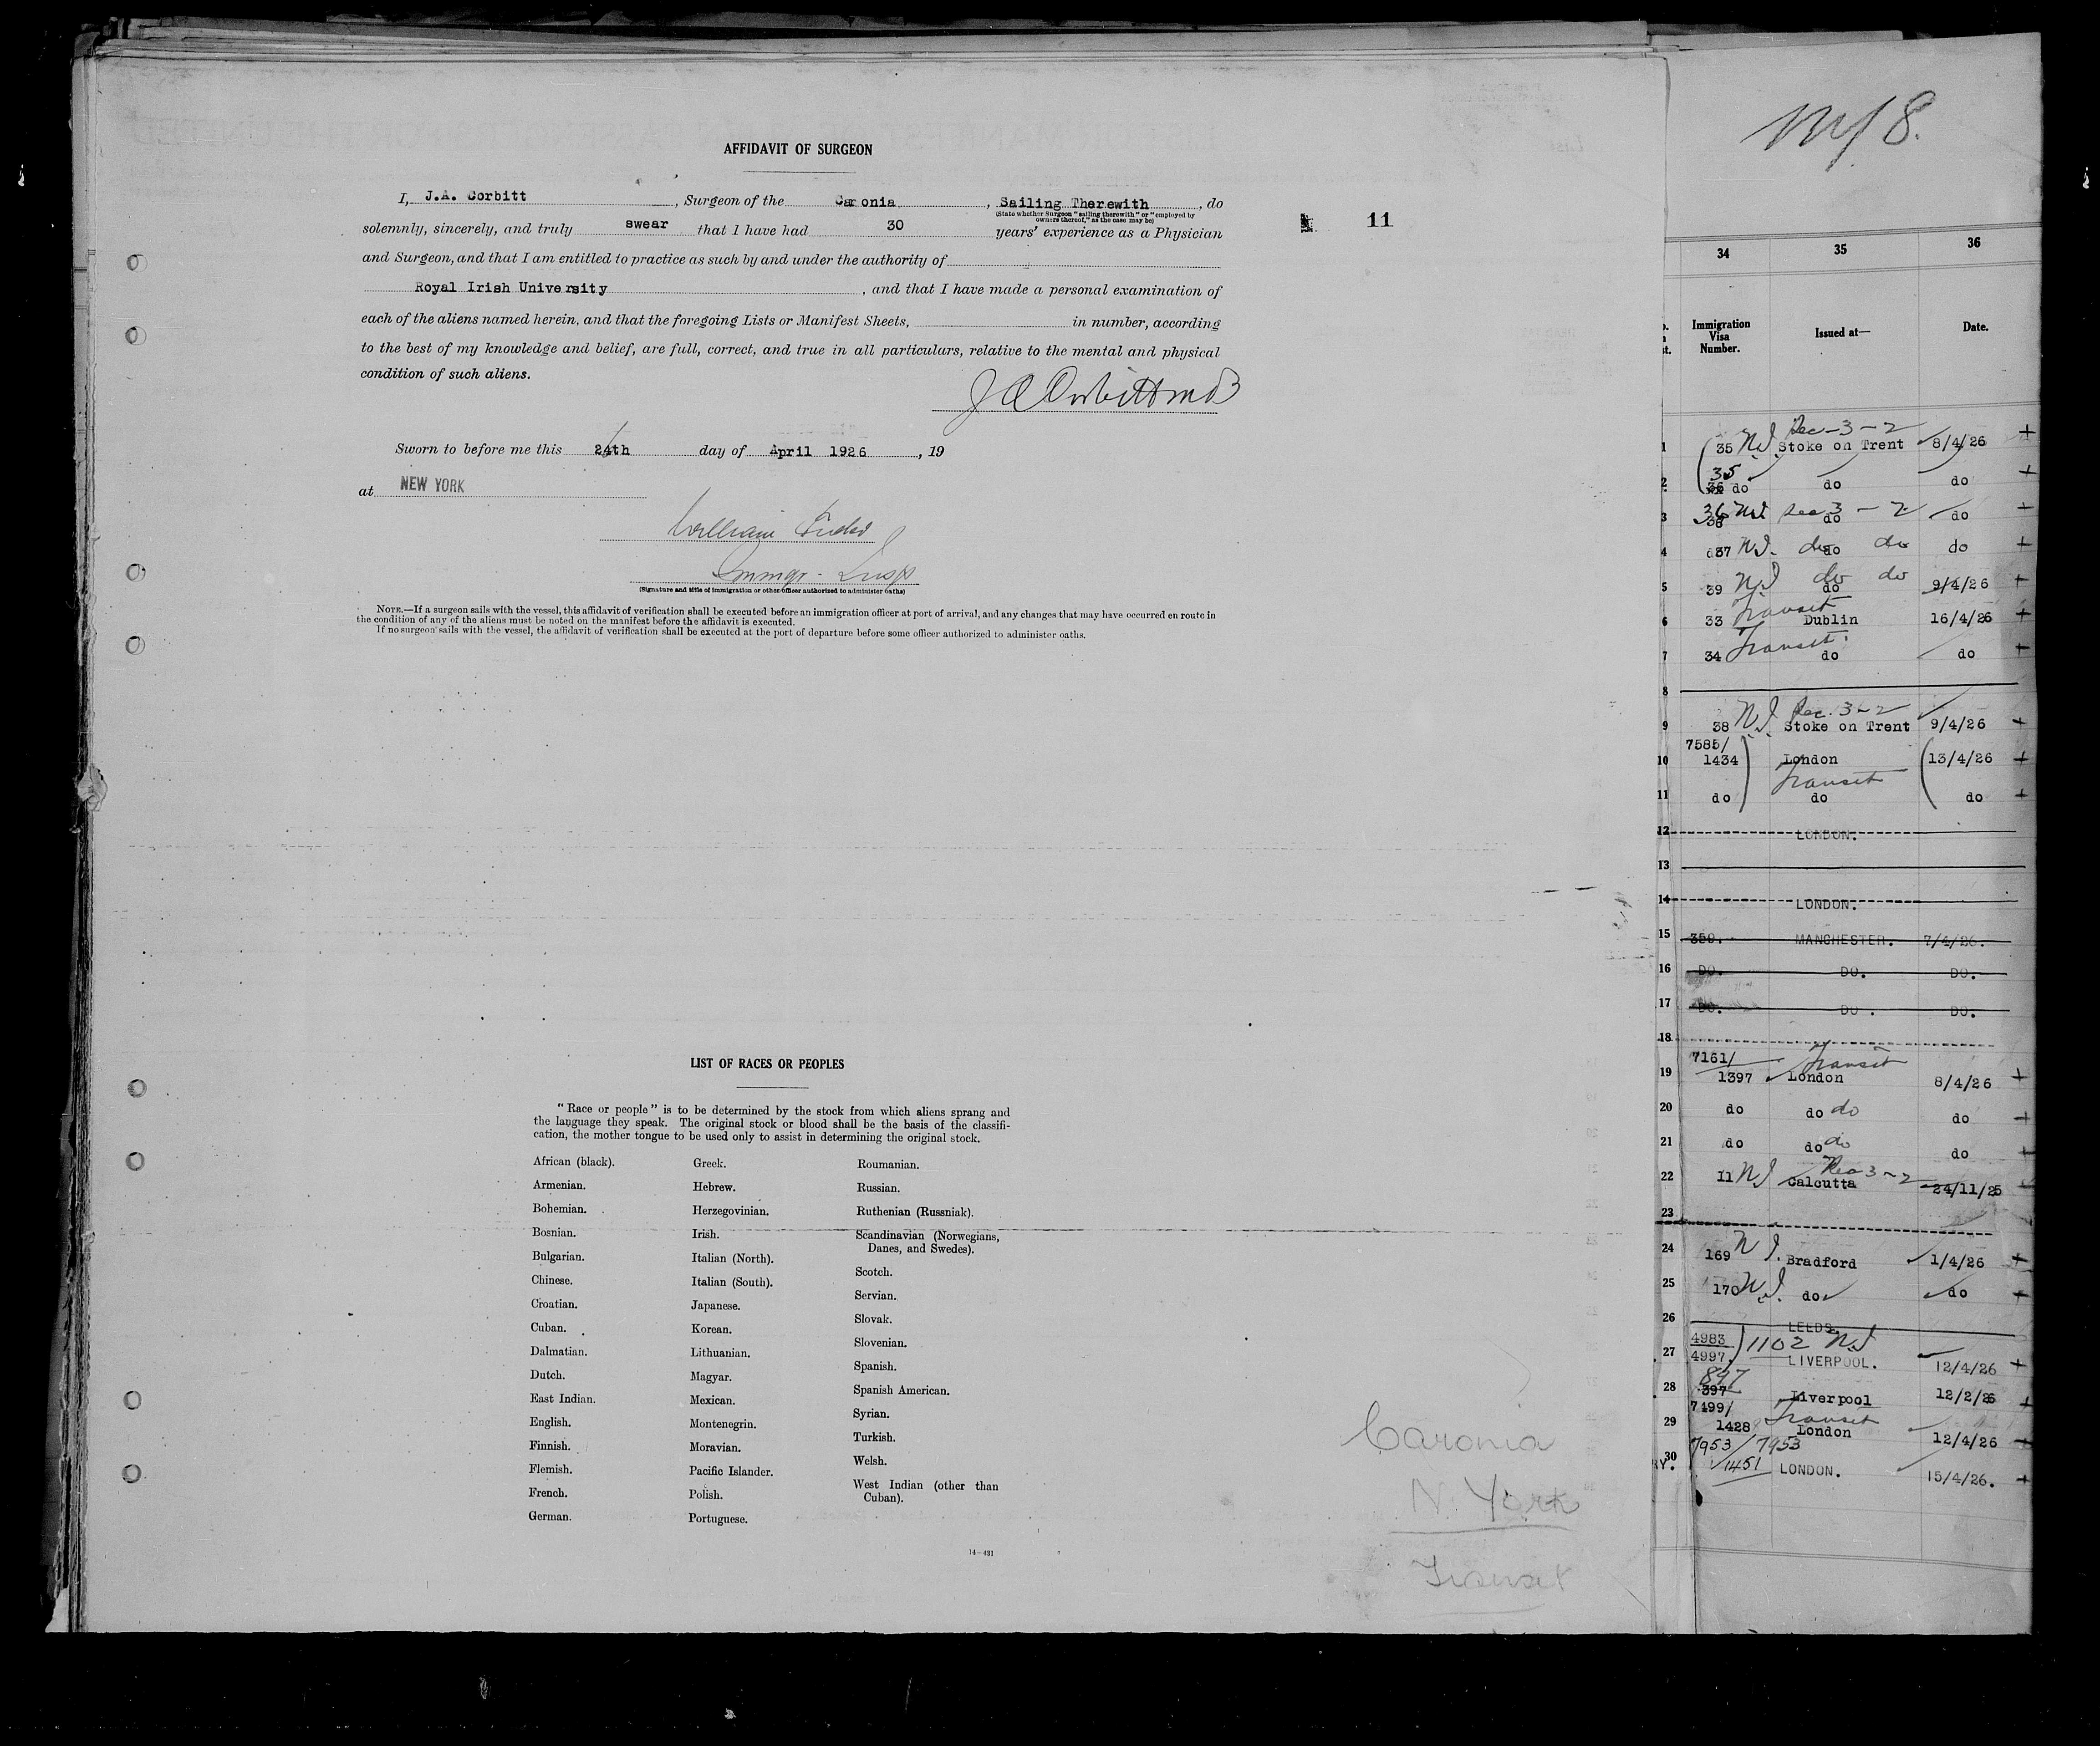 AFFIDAVIT OF SURGEON
I, J.A. Corbitt, Surgeon of the Caronia, Sailing Therewith, do
(State whether Surgeon "sailing therewith" or "employed by
owners thereof," as the case may be)
solemnly, sincerely, and truly swear that I have had 30 years' experience as a Physician
and Surgeon, and that I am entitled to practice as such by and under the authority of
Royal Irish University, and that I have made a personal examination of
each of the aliens named herein, and that the foregoing Lists or Manifest Sheets, in number, according
to the best of my knowledge and belief, are full, correct, and true in all particulars, relative to the mental and physical
condition of such aliens.
J A Corbitt MB
Sworn to before me this 24th day of April 1926, 19
at NEW YORK
William
Immgr. Insp
(Signature and title of immigration or other officer authorized to administer oaths)
NOTE.—If a surgeon sails with the vessel, this affidavit of verification shall be executed before an immigration officer at port of arrival, and any changes that may have occurred en route in
the condition of any of the aliens must be noted on the manifest before the affidavit is executed.
If no surgeon sails with the vessel, the affidavit of verification shall be executed at the port of departure before some officer authorized to administer oaths.
11
LIST OF RACES OR PEOPLES
"Race or people" is to be determined by the stock from which aliens sprang and
the language they speak. The original stock or blood shall be the basis of the classifi-
cation, the mother tongue to be used only to assist in determining the original stock.
African (black).
Armenian.
Bohemian.
Bosnian.
Bulgarian.
Chinese.
Croatian.
Cuban.
Dalmatian.
Dutch.
East Indian.
English.
Finnish.
Flemish.
French.
German.
Greek.
Hebrew.
Herzegovinian.
Irish.
Italian (North).
Italian (South).
Japanese.
Korean.
Lithuanian.
Magyar.
Mexican.
Montenegrin.
Moravian.
Pacific Islander.
Polish.
Portuguese.
Roumanian.
Russian.
Ruthenian (Russniak).
Scandinavian (Norwegians,
Danes, and Swedes).
Scotch.
Servian.
Slovak.
Slovenian.
Spanish.
Spanish American.
Syrian.
Turkish.
Welsh.
West Indian (other than
Cuban).
14-431
Caronia
N. York
Transit
8.
34 35 36
Immigration
Visa
Number. Issued at— Date.
Sec-3-2
1 35 N.I. Stoke on Trent 8/4/26 +
35
2 36 do do do +
3 36 N.I. Sec 3-2 38 do do +
4 d37 N.I. do do do do +
5 39 N.I. do do do 9/4/26 +
6 33 Transit Dublin 16/4/26 +
7 34 Transit do do +
8
Sec. 3-2
9 38 N.I. Stoke on Trent 9/4/26 +
7585/
10 1434 London 13/4/26 +
Transit
11 do do do +
12 LONDON.
13
14 LONDON.
15 359. MANCHESTER. 7/4/26.
16 DO. DO. DO.
17 DO. DO. DO.
18
7161/ Transit
19 1397 London 8/4/26 +
20 do do do do +
21 do do do do +
Sec 3-2
22 11 N.I. Calcutta 24/11/25 +
23
24 169 N.I. Bradford 1/4/26 +
25 170 N.I. do do +
26 LEEDS.
4983 1102 N.I.
27 4997. LIVERPOOL. 12/4/26 +
897
28 397 Liverpool 12/2/26 +
7499/ Transit
29 1428 London 12/4/26 +
7953/7953
30 1451 LONDON. 15/4/26. +
RY.